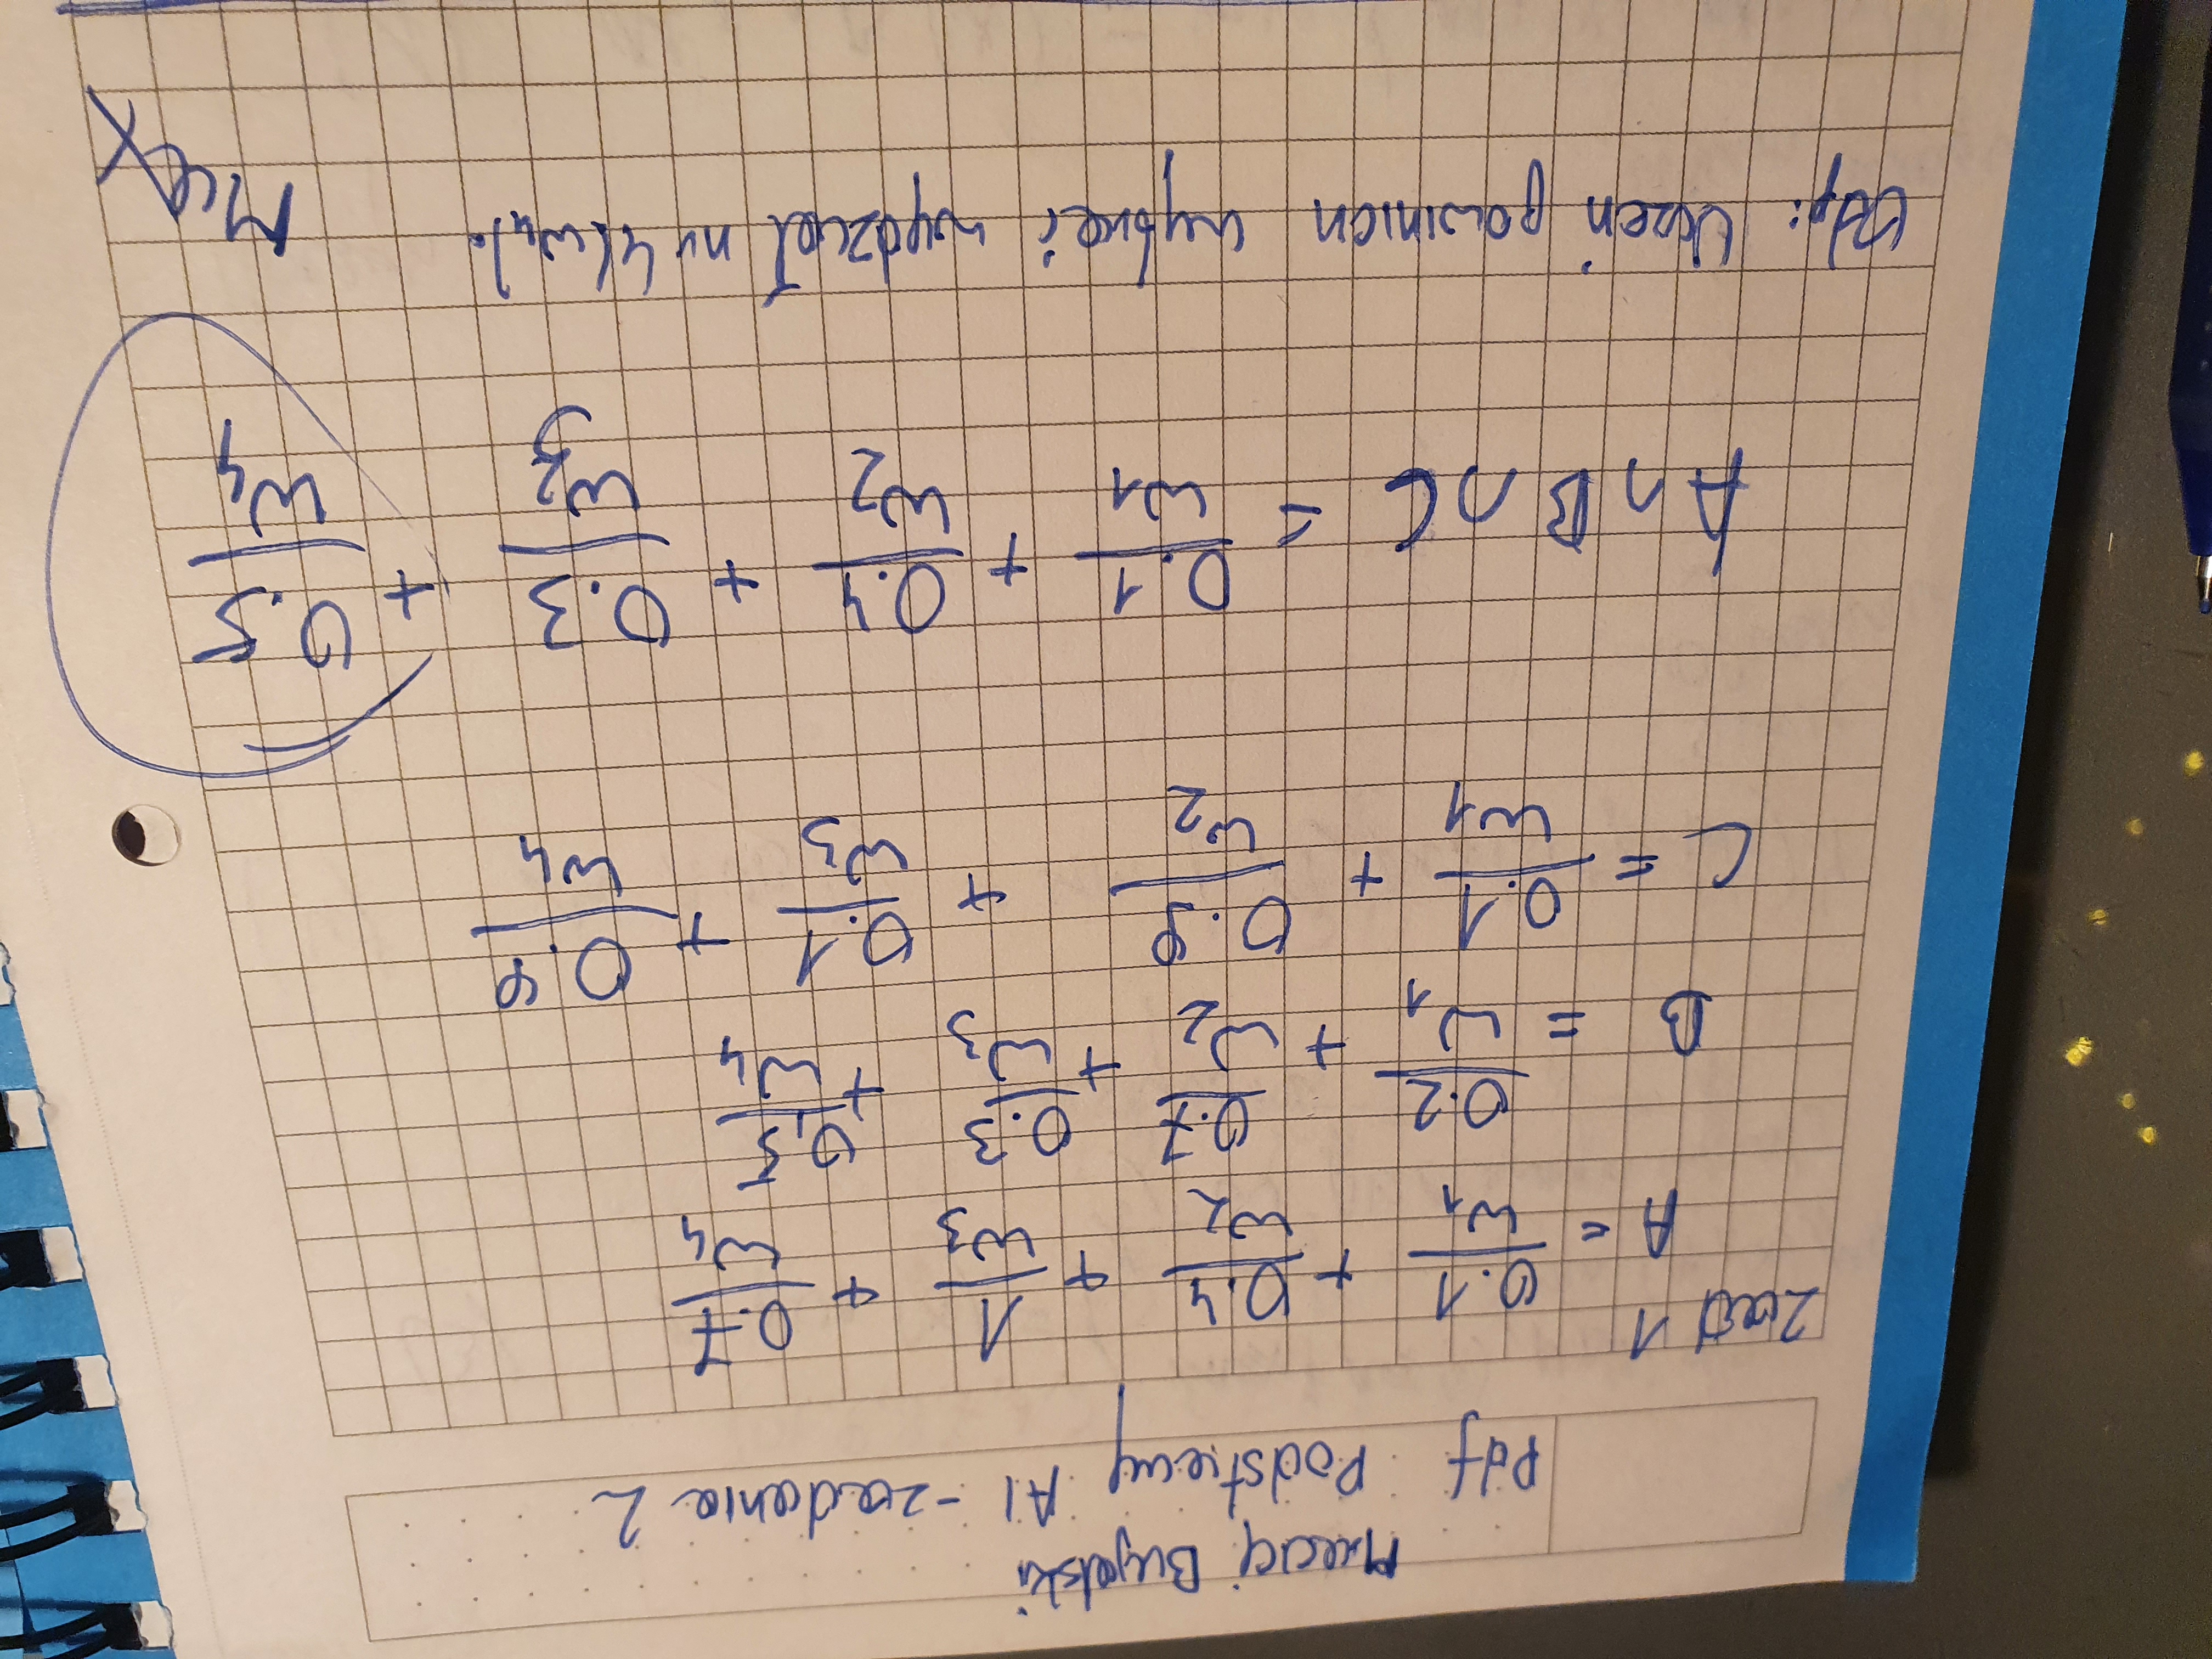 Maciej Bujalski
Pdf Podstawy AI - zadania 2
Zad 1
A = 0.1/w1 + 0.4/w2 + 1/w3 + 0.7/w4
B = 0.2/w1 + 0.7/w2 + 0.3/w3 + 0,5/w4
C = 0.1/w1 + 0.9/w2 + 0.1/w3 + 0.9/w4
A ∩ B ∩ C = 0.1/w1 + 0.4/w2 + 0.3/w3 + 0.5/w4
Odp: Uczeń powinien wybrać wydział nr 4 (w4).
Max